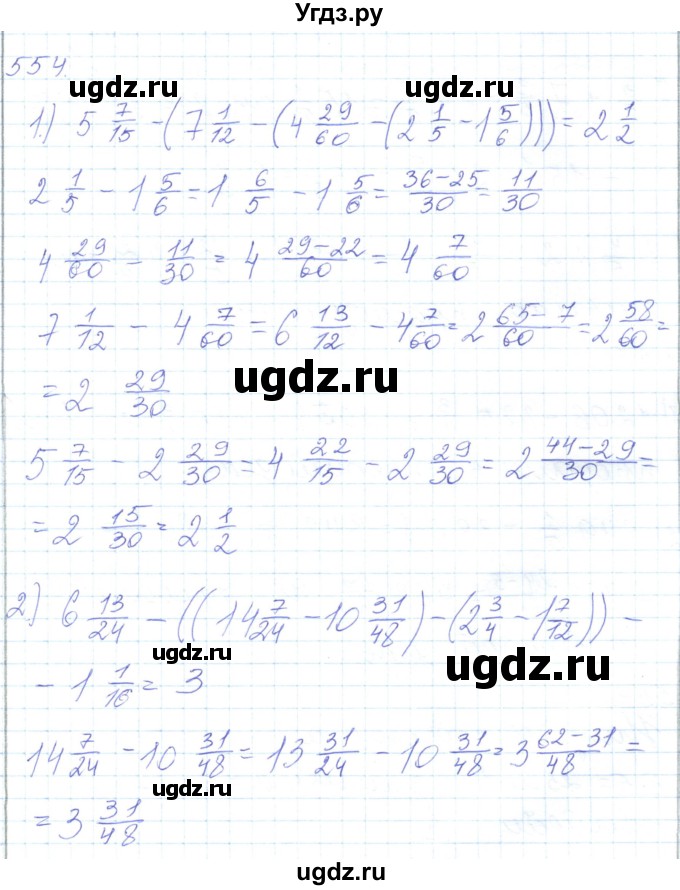 Угдз.ру
554.
ugdz.ru ugdz.ru
1.) 5 7/15 - (7 1/12 - (4 29/60 - (2 1/5 - 1 5/6))) = 2 1/2
2 1/5 - 1 5/6 = 1 6/5 - 1 5/6 = (36-25)/30 = 11/30
4 29/60 - 11/30 = 4 (29-22)/60 = 4 7/60
7 1/12 - 4 7/60 = 6 13/12 - 4 7/60 = 2 (65-7)/60 = 2 58/60 =
= 2 29/30
ugdz.ru
5 7/15 - 2 29/30 = 4 22/15 - 2 29/30 = 2 (44-29)/30 =
= 2 15/30 = 2 1/2
2.) 6 13/24 - ((14 7/24 - 10 31/48) - (2 3/4 - 1 7/12)) -
ugdz.ru ugdz.ru
- 1 1/16 = 3
14 7/24 - 10 31/48 = 13 31/24 - 10 31/48 = 3 (62-31)/48 =
ugdz.ru
= 3 31/48
ugdz.ru